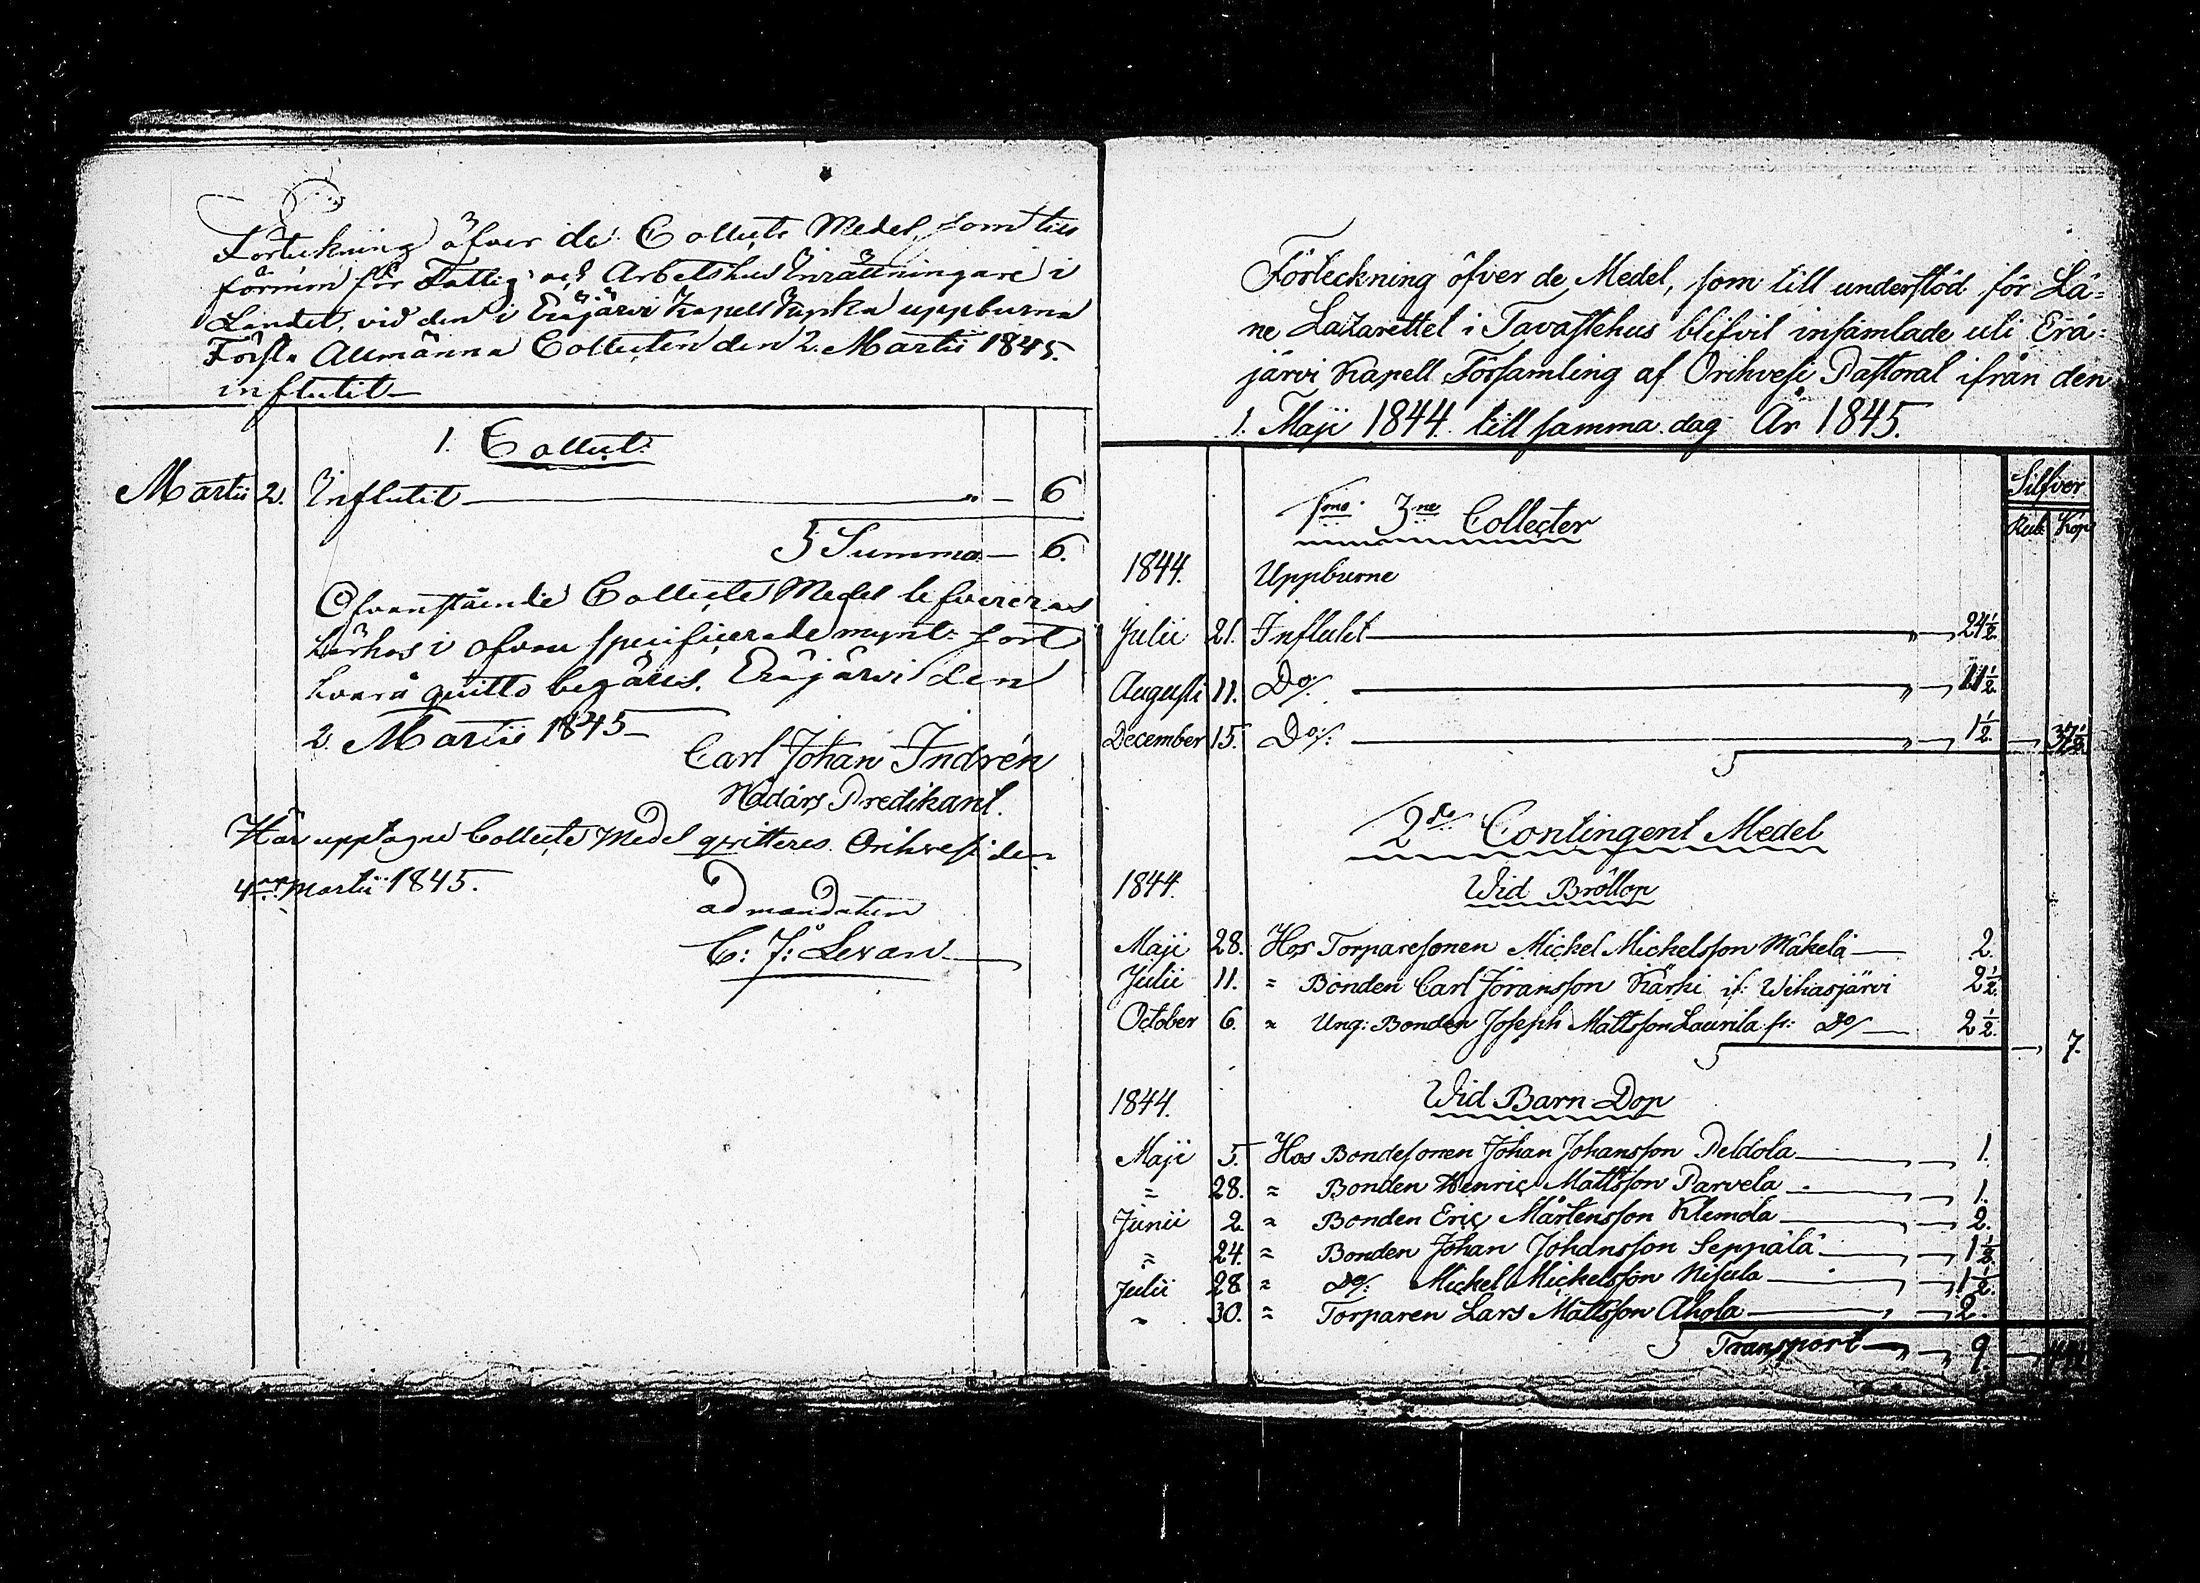 Förteckning öfver de Collects Medel, som till
förmon för Fattig och Arbetshus Inrättningare i
Landet, vid den i Eräjärvi Kapell Kyrka uppburna
Första Allmänna Collecten den 2. Martii 1845.
influtit
1. Collect:
Martii 2. Influtit " 6
Summa 6.
Ofvanstående Collects Medel lefvereras
härhos i ofvan specificerade mynt
hvarå quitto begäres. Eräjärvi den
2. Martii 1845
Carl Johan Indrén
Nådårs Predikant.
Här upptagne Collects Medel qvitteres Orihvesi den
4. Martii 1845.
ad mandatum
C: J: Levan
Förteckning öfver de Medel, som till understöd för Lä=
ne Lazarettet i Tavastehus blifvit insamlade uti Erä=
järvi Kapell Församling af Orihvesi Pastoral ifrån den
1. Maji 1844. till samma dag År 1845.
Silfver
Rub. Kop.
1mo 3ne Collecter
1844. Uppburne
Julii 21. Influtit " 24½.
Augusti 11. Do/. " 11½.
December 15. Do/: " 1½. 37½.
2do Contingent Medel
1844. Wid Bröllop
Maji 28. Hos Torparesonen Michel Michelsson Mäkelä 2.
Julii 11. " Bonden Carl Jöransson Kärki if: Wihasjärvi 2½.
October 6. " Ung: Bonden Joseph Mattsson Laurila fr: Do/ 2½.
7.
1844. Wid Barn Dop
Maji 5. Hos Bondesonen Johan Johansson Peldola 1.
" 28. " Bonden Henric Mattsson Parvela 1.
Junii 2. " Bonden Eric Mårtensson Klemola 2.
" 24. " Bonden Johan Johansson Seppälä 1½.
Julii 28 " Do/. Michel Michelsson Nisula 1½.
" 30. " Torparen Lars Mattsson Ahola 2.
Transport 9